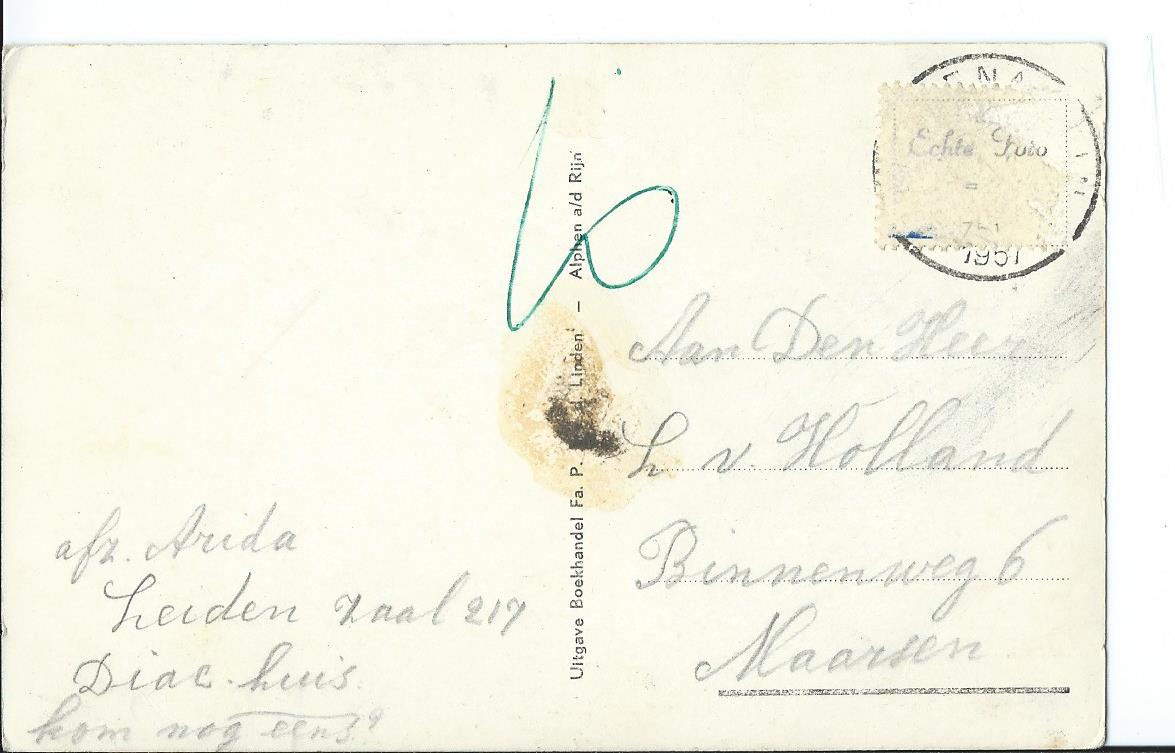 afz. Arida
Leiden Zaal 217
Diac. huis.
kom nog eens?
6
Uitgave Boekhandel Fa. P. Linden' – Alphen a/d Rijn'
Echte Foto
1951
Aan Den Heer
L v. Holland
Binnenweg 6
Maarsen